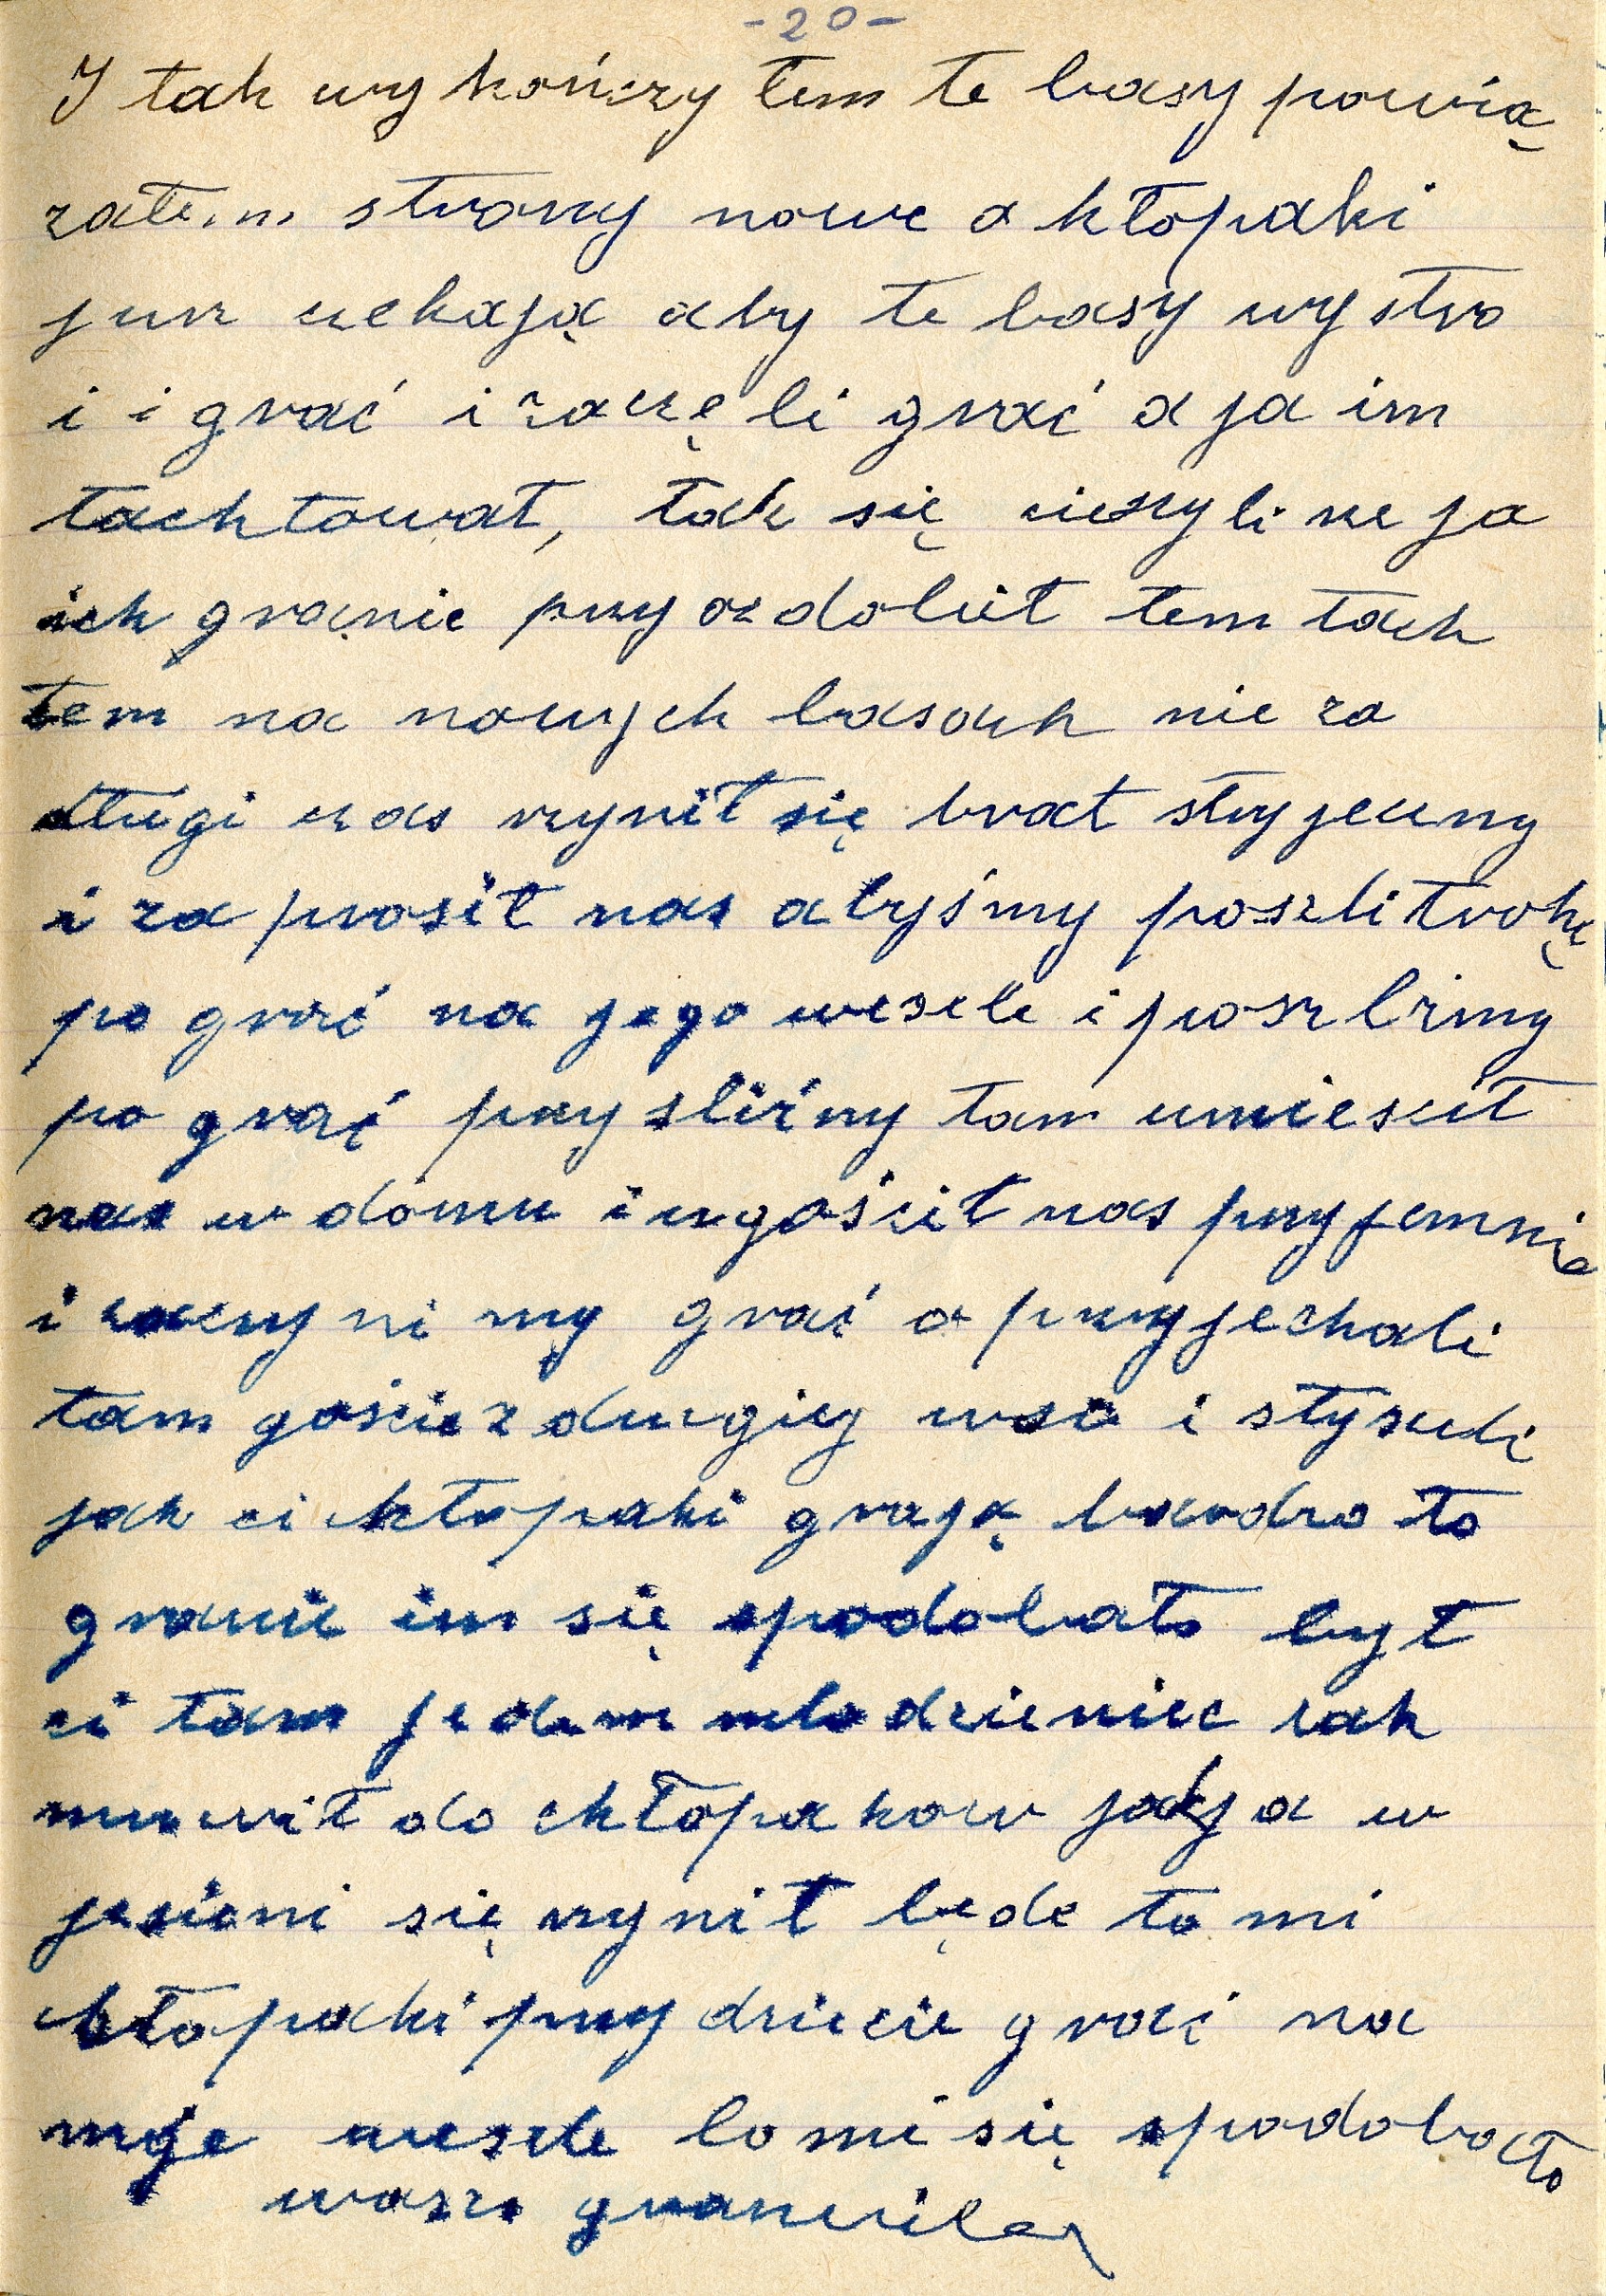 -20-
I tak wy kończy łem te basy powią
załem strony nowe a kłopaki
jusz czekają aby te basy wystro
i i grać i zaczęli grać a ja im
tachtował, tak się cieszyli że ja
ich granie przyozdobił tem tach
tem na nowych basach nie za
długi czas rzynił się brat stryjeczny
i za prosił nas abyśmy poszli trohę
po grać na jego wesele i poszliźmy
po grać przy sliźmy tam umieścił
nas w domu i ugościł nas przyjemnie
i zaczyni my grać a przyjechali
tam goście z drugiej wsi i słyszeli
jak ci chłopaki grają bardzo to
granie im się spodobało był
ci tam jeden młodzieniec zak
muwił do chłopakow jak ja w
jesieni się rzynił będe to mi
chłopaki przy dziecie grać na
moje wesele bo mi się spodobało
wasze